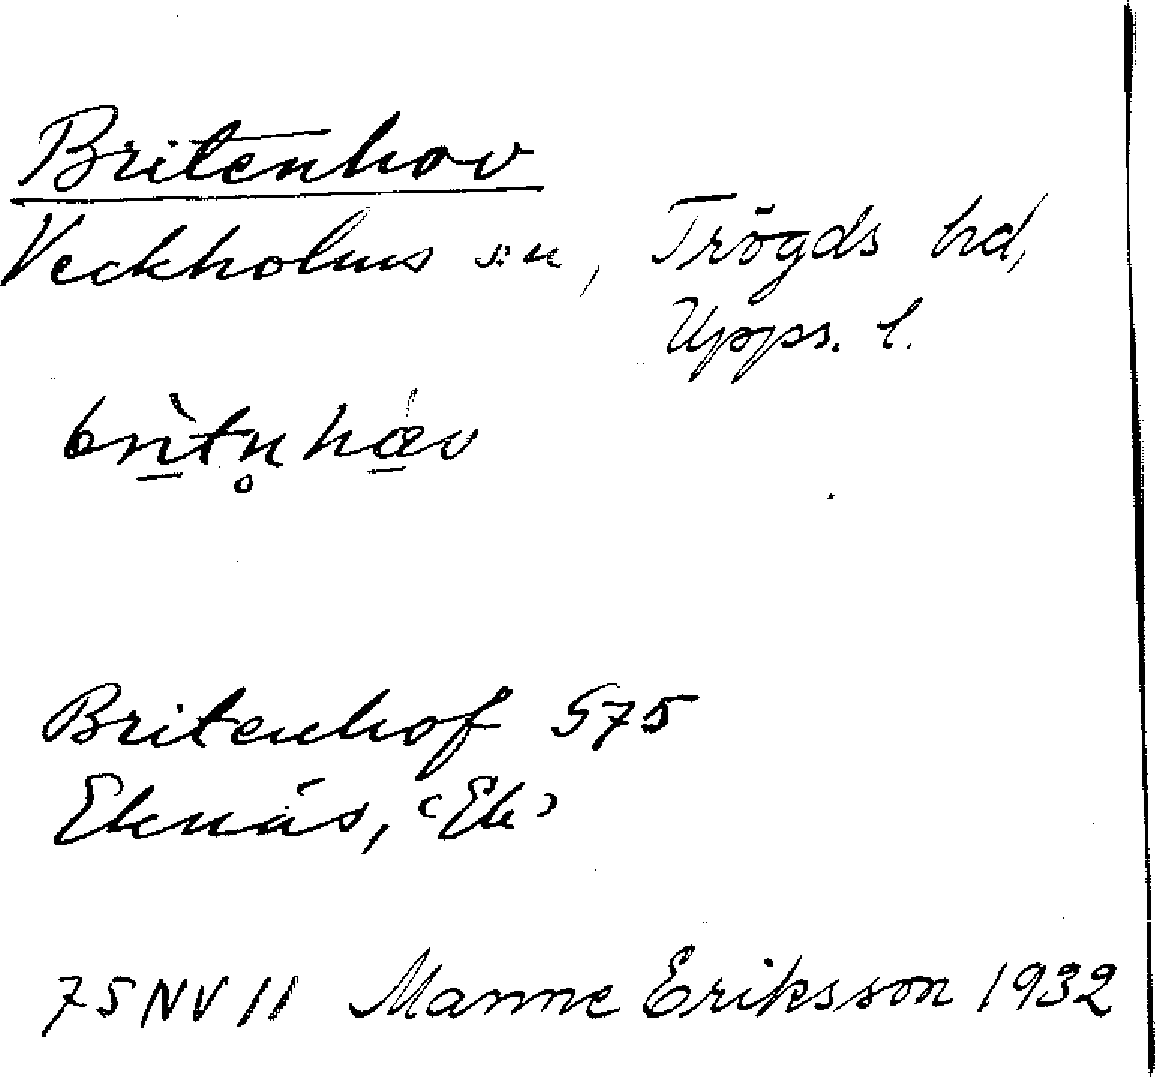 Britenhov
Veckholms s:n, Trögds hd,
Upps. l.
brìtn̥hæv
Britenhof 575
Eknäs, "Ek"
75 NV 11 Manne Eriksson 1932